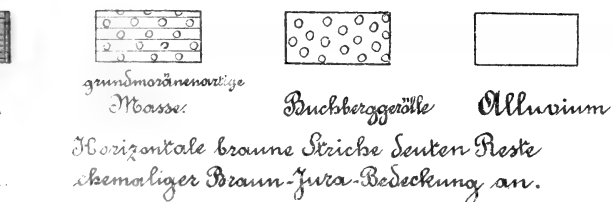 grundmoränenartige
Masse. Buchberggerölle Alluvium
Horizontale braune Striche deuten Reste
ehemaliger Braun-Jura-Bedeckung an.